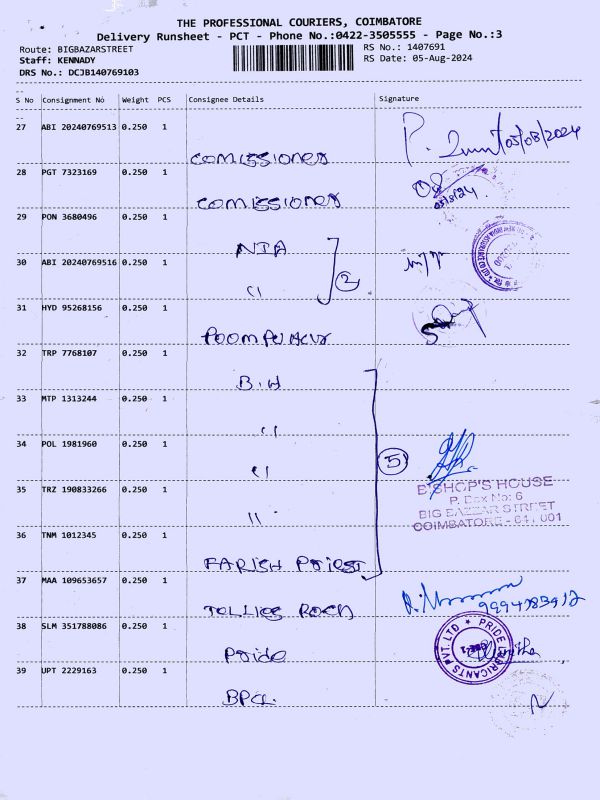 THE PROFESSIONAL COURIERS, COIMBATORE
Delivery Runsheet - PCT - Phone No.:0422-3505555 - Page No.:3
Route: BIGBAZARSTREET
Staff: KENNADY
DRS No.: DCJB140769103
RS No.: 1407691
RS Date: 05-Aug-2024
S No Consignment No Weight PCS Consignee Details Signature
27 ABI 20240769513 0.250 1
COMISSIONER
05/08/2024
28 PGT 7323169 0.250 1
COMISSIONER
29 PON 3680496 0.250 1
NIA
30 ABI 20240769516 0.250 1
"
2
31 HYD 95268156 0.250 1
POOMPUHAR
32 TRP 7768107 0.250 1
B.H
33 MTP 1313244 0.250 1
"
34 POL 1981960 0.250 1
"
5
35 TRZ 190833266 0.250 1
"
BISHOP'S HOUSE
P. Box No: 6
BIG BAZZAR STREET
COIMBATORE - 641 001
36 TNM 1012345 0.250 1
PARISH PRIEST
37 MAA 109653657 0.250 1
38 SLM 351788086 0.250 1
Pride
PRIDE LUBRICANTS PVT. LTD
39 UPT 2229163 0.250 1
BPCL